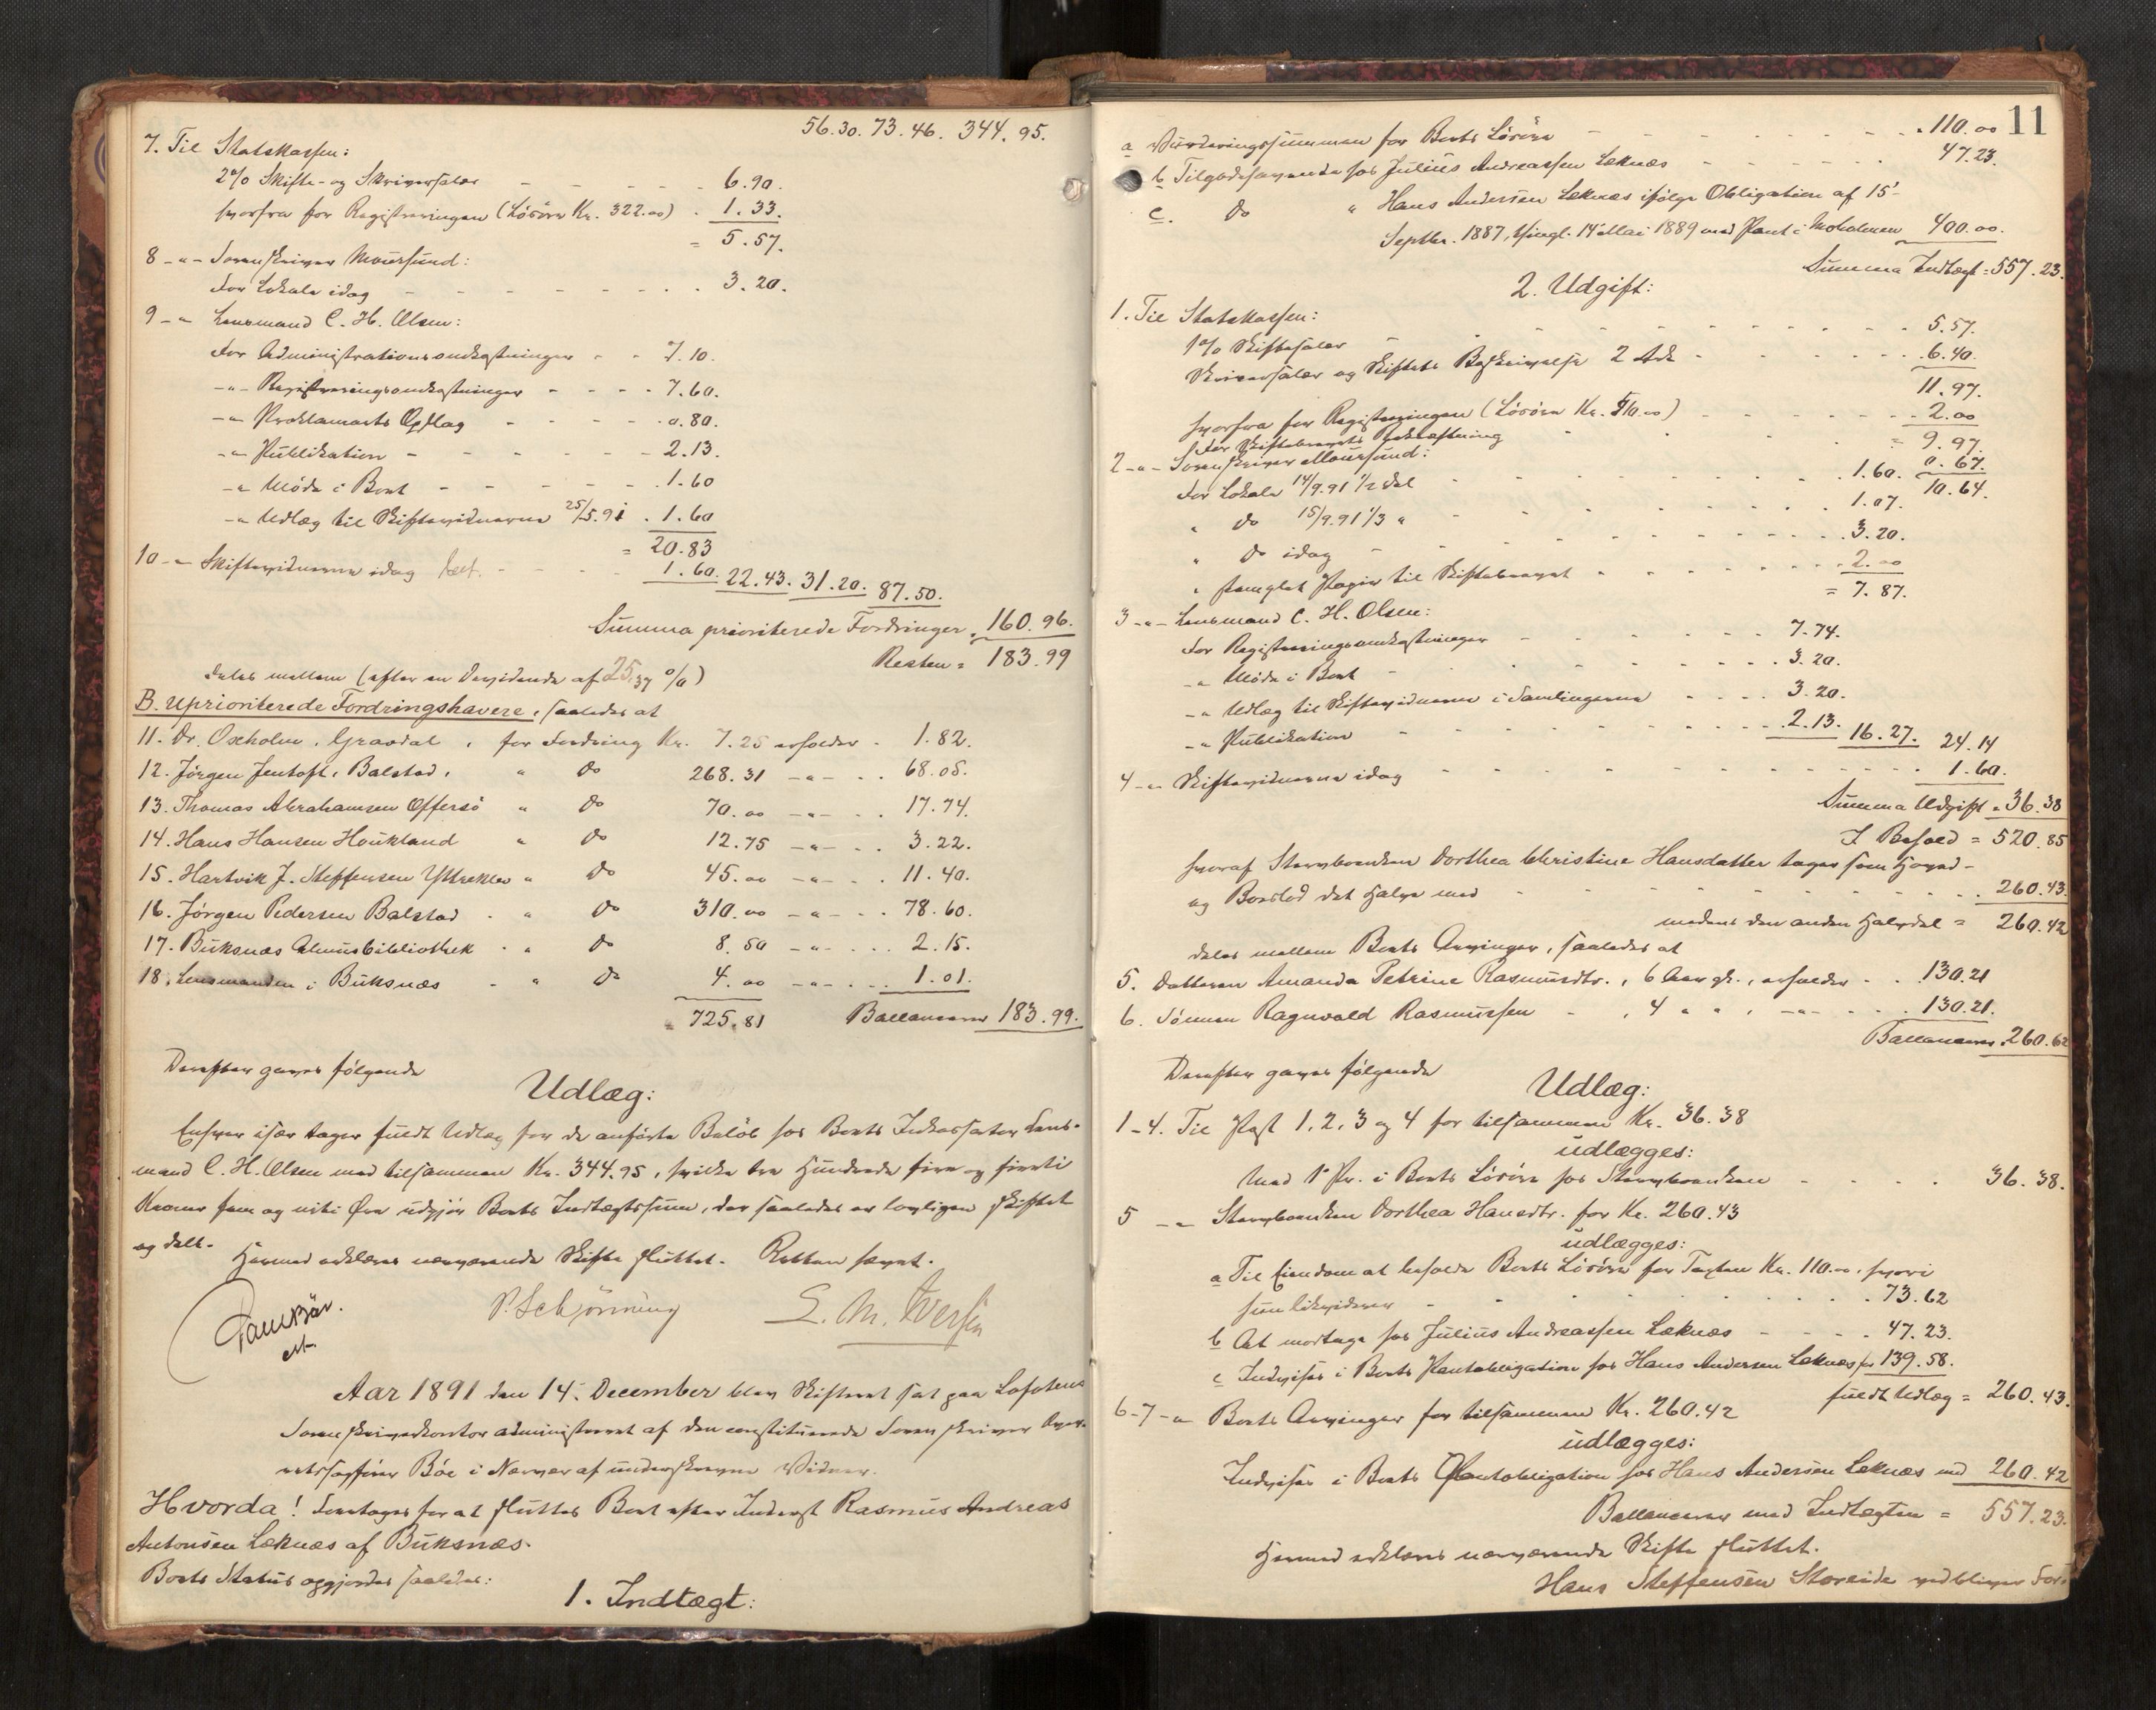 56.30. 73.46. 344.95.
7. Til Statskassen:
2% Skifte- og Skriversalær - - - - - 6.90.
hvorfra for Registreringen (Løsöre Kr. 322.00) . 1.33.
= 5.57.
8 -"- Sorenskriver Moursund:
For Lokale idag - - - - - - - . 3.20.
9 -" Lensmand C. H. Olsen:
For Administrationsomkostninger - - 7.10.
-"- Registreringsomkostninger - - - - 7.60.
-"- Proklamaets Opslag - - - - 0.80.
-"- Publikation - - - - - - 2.13.
-" Möde i Boet - - - - - . 1.60
-" Udlæg til Skiftevidnerne 25/5.91 . 1.60
= 20.83
10 -" Skiftevidnerne idag - - - - 1.60. 22.43. 31.20. 87.50.
Summa prioriterede Fordringer . 160.96.
Resten = 183.99
deles mellem (efter en Dividende af 25,37 %)
B. Uprioriterede Fordringshavere, saaledes at
11. Dr. Oxholm, Gravdal, for Fordring Kr. 7.25 erholder . 1.82.
12. Jörgen Jentoft, Balstad, " do 268.31 -"- . . 68.08.
13. Thomas Abrahamsen Offersö " do 70.00 -"- . . 17.74.
14. Hans Hansen Houkland " do 12.75 -"- . . 3.22.
15. Hartvik J. Steffensen Ytreklev " do 45.00 -"- . . 11.40.
16. Jörgen Pedersen Balstad . " do 310.00 -"- . . 78.60.
17. Buksnæs Almuebibliothek . " do 8.50 -"- . . . 2.15.
18. Lensmanden i Buksnæs - " do 4.00 -"- . . . 1.01.
= 725.81 Ballancerer 183.99.
Derefter gaves følgende
Udlæg:
Enhver især tager fuldt Udlæg for de anførte Beløb hos Boets Inkassator Lens-
mand C. H. Olsen med tilsammen Kr. 344.95, hvilke tre Hundrede fire og firti
Kroner fem og niti Öre udgjör Boets Indtægtssum, der saaledes er lovligen skiftet
og delt.
Hermed erklæres nærværende Skifte sluttet. Retten hævet.
P. Schönning
Aar 1891 den 14. December blev Skifteret sat paa Lofotens
Sorenskriverkontor administreret af den constituerede Sorenskriver Over-
retssagförer Böe i Nærvær af underskrevne Vidner.
Hvorda! Foretoges for at sluttes Boet efter Inderst Rasmus Andreas
Antonsen Leknæs af Buksnæs.
Boets Status opgjordes saaledes:
1. Indtægt:
11
a Vurderingssummen for Boets Lösöre - - - - - - - - . 110.00
b Tilgodehavende hos Julius Andreassen Leknæs - - - - - - 47.23.
c. do " Hans Andersen Leknæs ifølge Obligation af 15'
Septbr. 1887, thingl. 14 Mai 1889 med Pant i Moholmen 400.00.
Summa Indtægt = 557.23.
2. Udgift:
1. Til Statskassen:
1% Skiftesalær - - - - - - - - - - 5.57.
Skriversalær og Skiftets Beskrivelse 2 Ark - - - - - - 6.40.
11.97.
hvorfra for Registreringen (Lösöre Kr. 510.00) - - - - - - 2.00
= 9.97.
For Skiftebrevets Bekræftning - - - - 0.67.
10.64.
2 -"- Sorenskriver Moursund:
For Lokale 14/9.91 1/2 del - - - - - - - 1.60.
" do 15/9.91 1/3 " - - - - - - - 1.07.
" do idag - - - - - - - - 3.20.
" stemplet Papir til Skiftebrevet - - - - - 2.00
= 7.87.
3 -"- Lensmand C. H. Olsen:
For Registreringsomkostninger - - - - - - 7.74.
-" Möde i Boet - - - - - - - 3.20.
-" Udlæg til Skiftevidnerne i Samlingerne - - - - 3.20.
-" Publikation - - - - - - - 2.13. 16.27. 24.14
4 -"- Skiftevidnerne idag - - - - - - - - 1.60.
Summa Udgift = 36.38
I Behold = 520.85
hvoraf Stervboenken Dorthea Christine Hansdatter tages som Hoved-
og Boeslod det Halve med - - - - - - - - 260.43.
medens den anden Halvdel = 260.42
deles mellem Boets Arvinger, saaledes at
5. Datteren Amanda Petrine Rasmusdtr., 6 Aar gl., erholder . . 130.21
6. Sönnen Ragnvald Rasmussen - , 4 " " , -"- . . . 130.21.
Ballancerer . 260.62
Derefter gaves følgende
Udlæg:
1-4. Til Post 1, 2, 3 og 4 for tilsammen Kr. 36.38
udlægges:
Med 1' Pr. i Boets Lösöre hos Stervboenken - - - - 36.38.
5 -"- Stervboenken Dorthea Hansdtr. for Kr. 260.43
udlægges:
a Til Eiendom at beholde Boets Lösöre for Taxten Kr. 110.00, hvori
hun likviderer - - - - - - - - 73.62
b At modtage hos Julius Andreassen Leknæs - - - - 47.23.
c Indvises i Boets Pantobligation hos Hans Andersen Leknæs for 139.58.
fuldt Udlæg = 260.43.
6-7 -" Boets Arvinger for tilsammen Kr. 260.42
udlægges:
Indvises i Boets Pantobligation hos Hans Andersen Leknæs med 260.42
Ballancerer med Indtægten = 557.23.
Hermed erklæres nærværende Skifte sluttet.
Hans Steffensen Storeide vedbliver For-